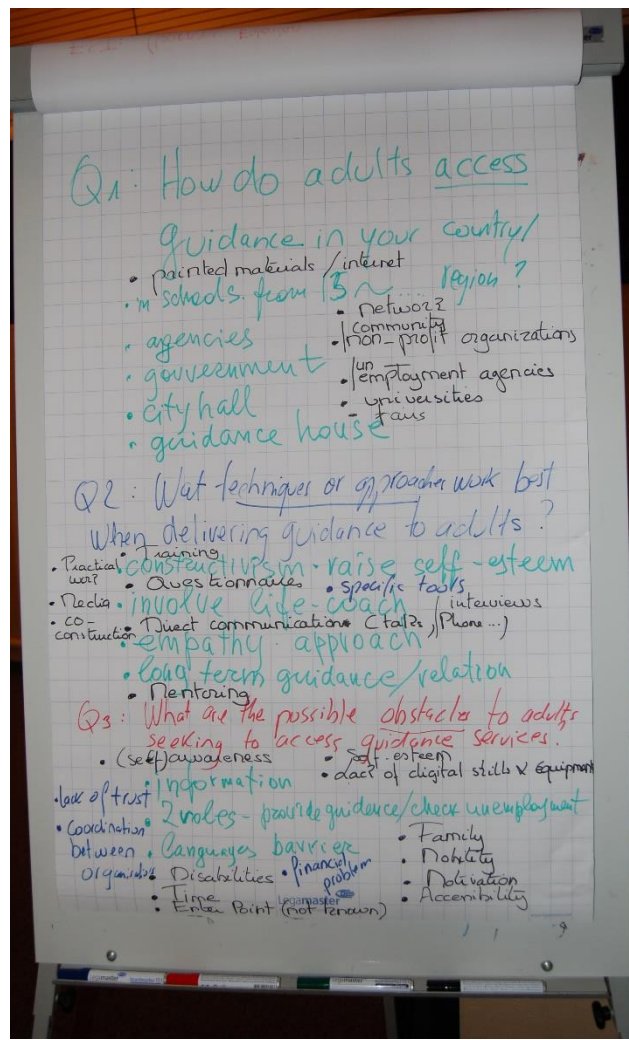 Q1: How do adults access
guidance in your country/
region?
• painted materials / internet
• in schools from 15 ~
• agencies
• gouvernment
• city hall
• guidance house
• networz
• community
non-profit organizations
• un
employment agencies
• universities
Q2: Wat techniques or approaches work best
when delivering guidance to adults?
• Training
• Practical
worz
• constructivism • raise self-esteem
• Questionnaires • specific tools
• Media • involve life-coach
• co-
construction
• Direct communication (talzs, interviews / Phone...)
• empathy approach
• long term guidance/relation
• Mentoring
Q3: What are the possible obstacles to adults
seeking to access guidance services?
• (self) awareness
• Self-esteem
• information
• Lacz of digital skills & equipment
• lack of trust
• 2 roles - provide guidance/check unemployment
• Coordination
between
• Languages barrier
• Disabilities
• financial
problem
• Time
• Enter Point (not known)
• Family
• Mobility
• Motivation
• Accessibility
Legamaster